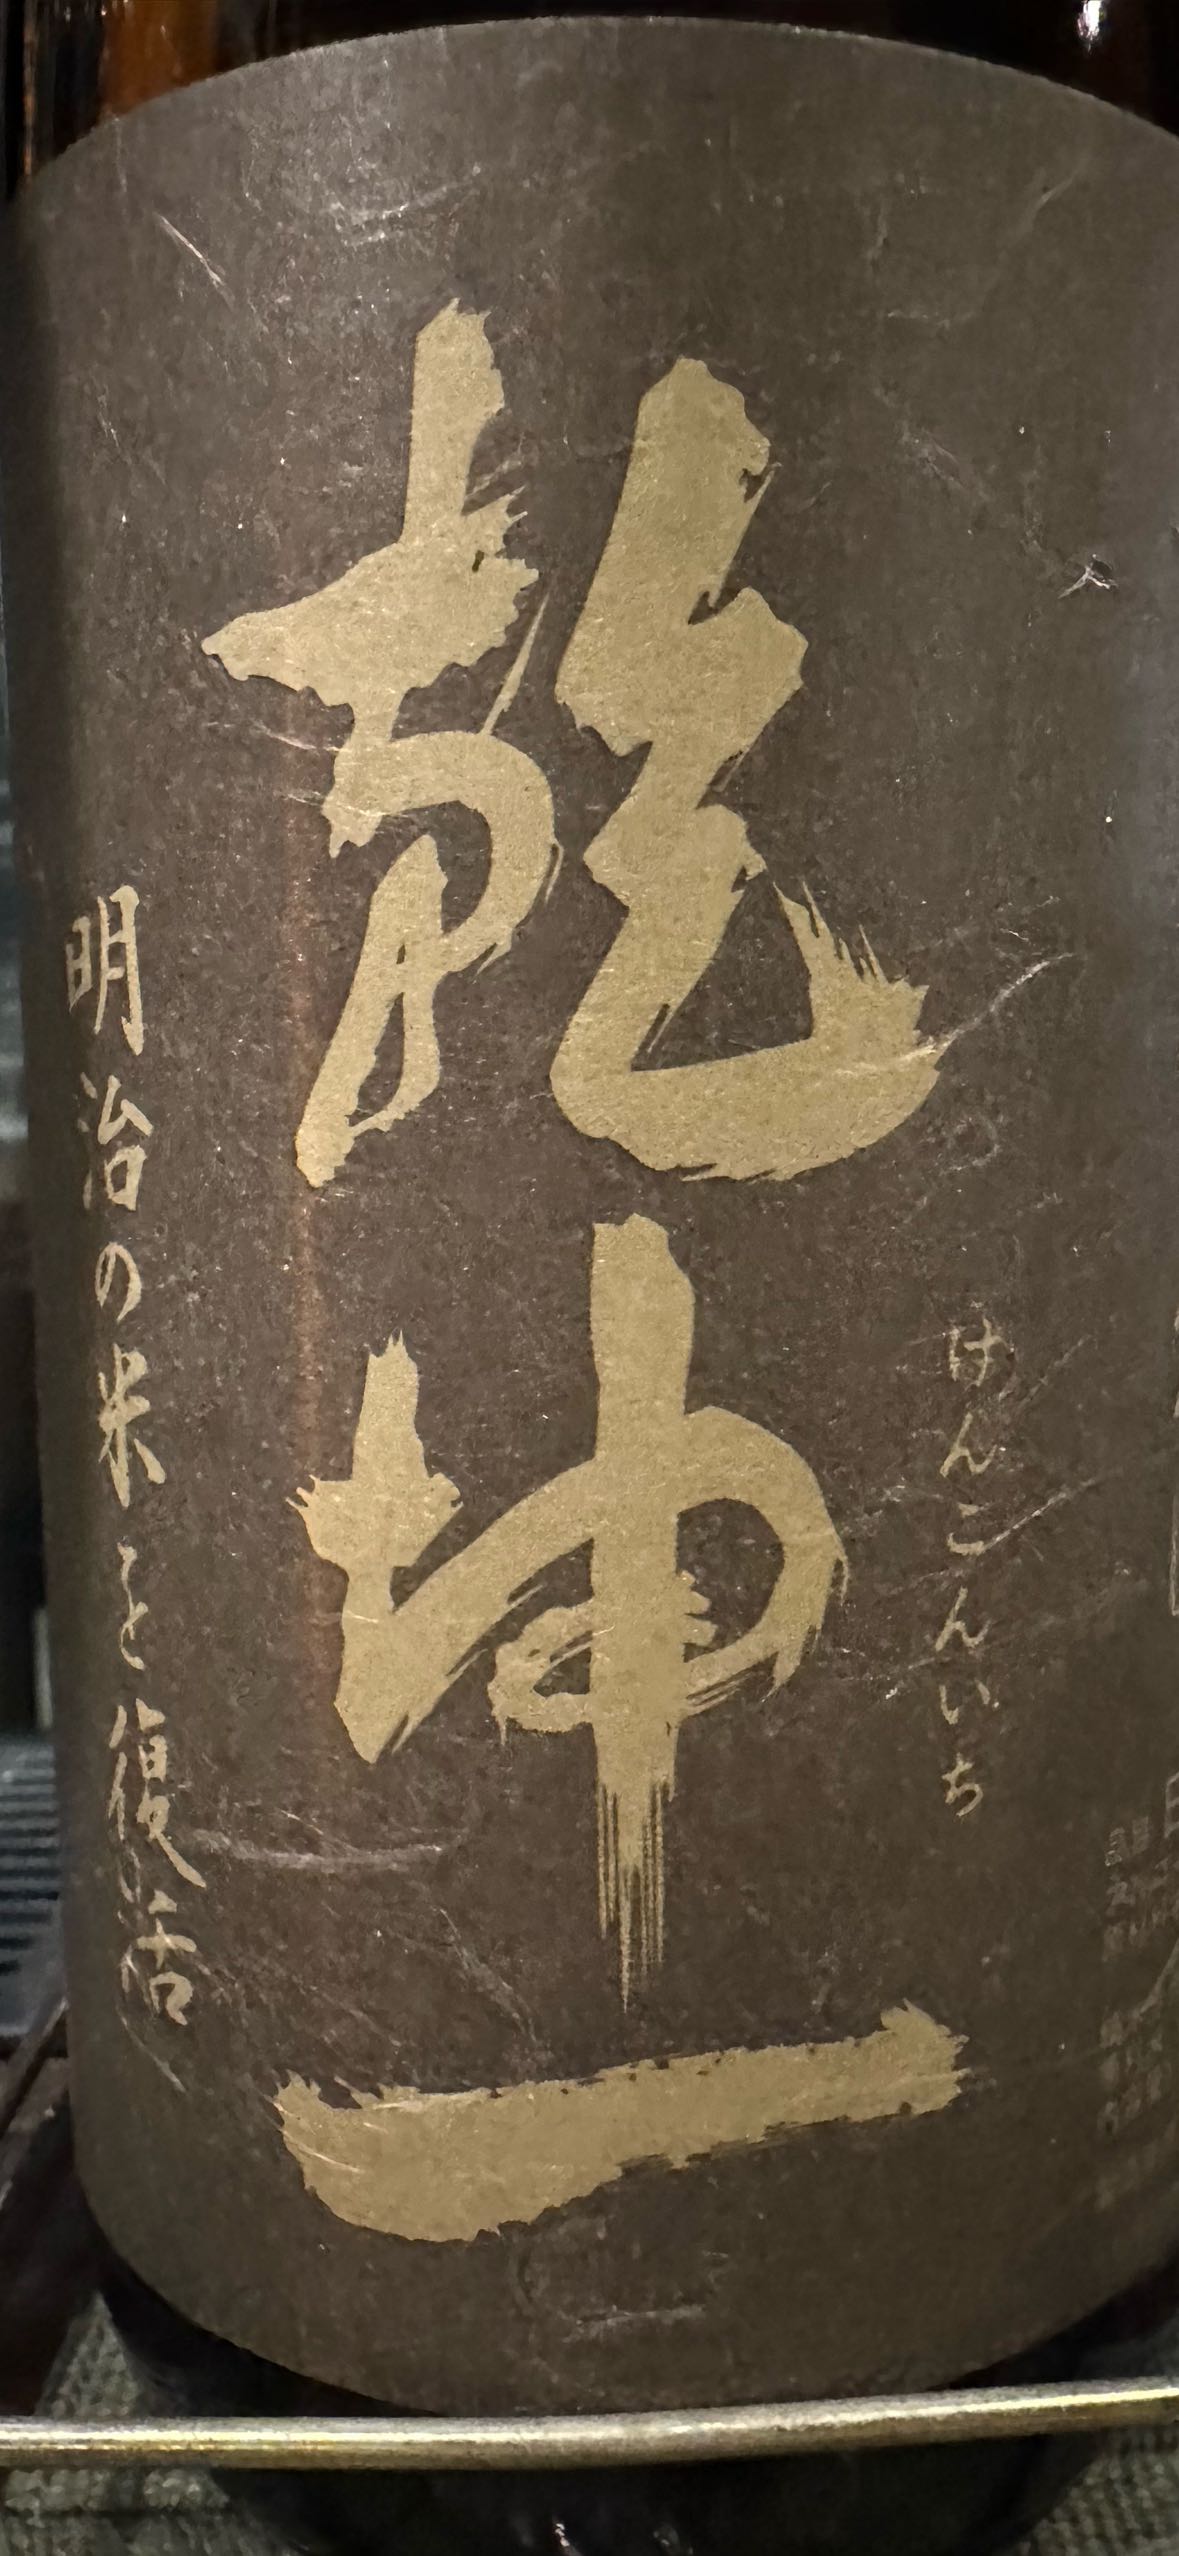 けんこんいち
乾坤一
明治の米を復活